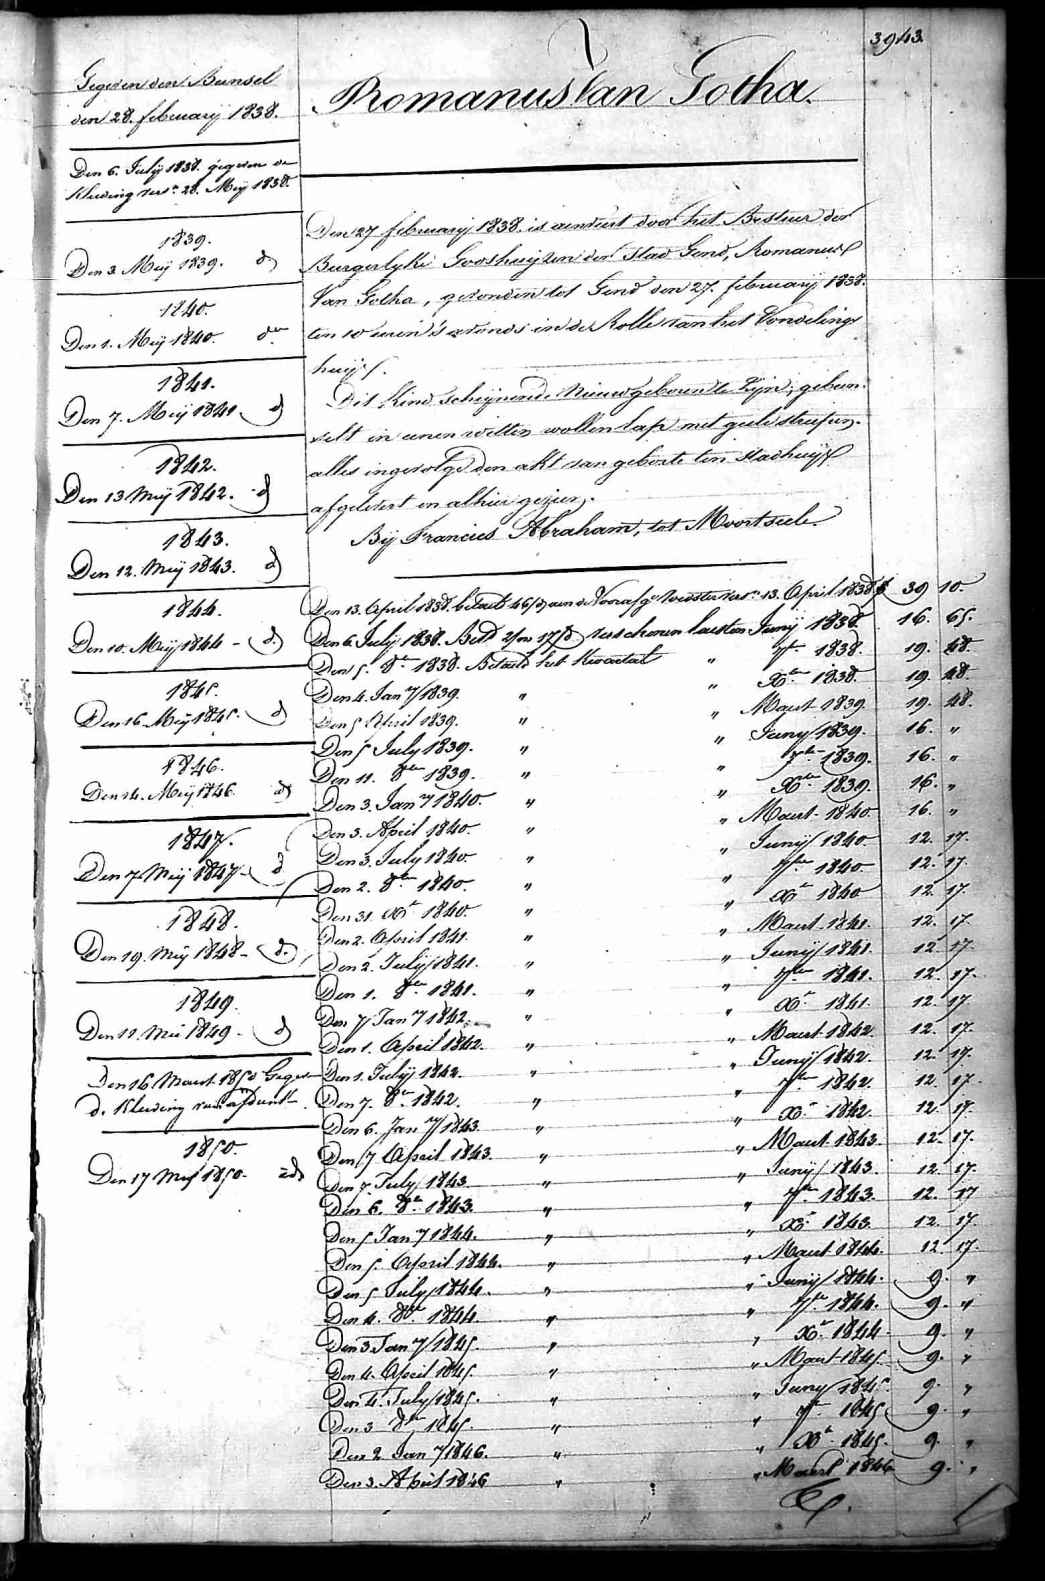 3943.
Romanus Van Gotha.
Gegeven den Bunsel
den 28. february 1838.
Den 6. July 1838. gegeven de
Kleeding vers.n 28. Meij 1838.
1839.
Den 3. Meij 1839. do
1840.
Den 1. Meij 1840. do
1841.
Den 7. Meij 1841 - do
1842.
Den 13 Meij 1842. - do
1843.
Den 12. Meij 1843. do
1844.
Den 10. Meij 1844 - do
1845.
Den 16. Meij 1845. - do
1846.
Den 14. Meij 1846. do
1847.
Den 7. Meij 1847 - do
1848.
Den 19. Meij 1848 - do.
1849.
Den 11. Mei 1849 - do
Den 16 Maart 1850 Gegeven
de Kleeding van
1850.
Den 17 Mei 1850. do
Den 27 february 1838. is aenveert door het Bestuer der
Burgerlyke Godshuijzen der Stad Gend, Romanus
Van Gotha, gevonden tot Gend den 27. february 1838.
ten 10 uren 's avonds in de Rolle van het Vondeling
huijs.
Dit Kind scheijnende Nieuwgeboren te Zyn, gebun-
selt in eenen witten wollen lap met geele streepen.
alles ingevolge den akt van geboorte ten Stadhuijse
afgelevert en alhier gezien.
Bij Francies Abraham, tot Moortseele.
Den 13. April 1838. betaelt aen de Voorafge Voedster vers.n 13. April 1838. 39 10.
Den 6. July 1838. verschenen laesten Junij 1838. 16. 65.
Den 5. 8.bre 1838. Betaelt het Kwartael " 7.bre 1838. 19. 48.
Den 4. Jan.ry 1839. " " X.bre 1838. 19. 48.
Den 5 April 1839. " " Maart 1839. 19. 48.
Den 5 July 1839. " " Junij 1839. 16. "
Den 11. 8.bre 1839. " " 7.bre 1839. 16. "
Den 3. Jan.ry 1840. " " X.bre 1839. 16. "
Den 3. April 1840. " " Maart 1840. 16. "
Den 3. July 1840. " " Junij 1840. 12. 17.
Den 2. 8.bre 1840. " " 7.bre 1840. 12. 17.
Den 31. X.r 1840. " " X.r 1840 12. 17.
Den 2. April 1841. " " Maart 1841. 12. 17.
Den 2. Julij 1841. " " Junij 1841. 12. 17.
Den 1. 8.bre 1841. " " 7.bre 1841. 12. 17.
Den 7 Jan.ry 1842. " " X.r 1841. 12. 17.
Den 1. April 1842. " " Maart 1842. 12. 17.
Den 1. Julij 1842. " " Junij 1842. 12. 17.
Den 7. 8.r 1842. " " 7.bre 1842. 12. 17.
Den 6. Jan.ry 1843. " " X.r 1842. 12. 17.
Den 7 April 1843. " " Maart 1843. 12. 17.
Den 7. July 1843. " " Junij 1843. 12. 17.
Den 6. 8.r 1843. " " 7.bre 1843. 12. 17
Den 5 Jan.ry 1844. " " X.r 1843. 12. 17.
Den 5. April 1844. " " Maart 1844. 12. 17.
Den 5 July 1844. " " Junij 1844. 9. "
Den 4. 8.bre 1844. " " 7.bre 1844. 9. "
Den 3 Jan.ry 1845. " " X.r 1844 9. "
Den 4. April 1845. " " Maart 1845. 9. "
Den 4. July 1845. " " Juny 1845. 9. "
Den 3 8.bre 1845. " " 7.r 1845 9. "
Den 2 Jan.ry 1846. " " X.r 1845. 9. "
Den 3. April 1846 " " Maart 1846 9. "